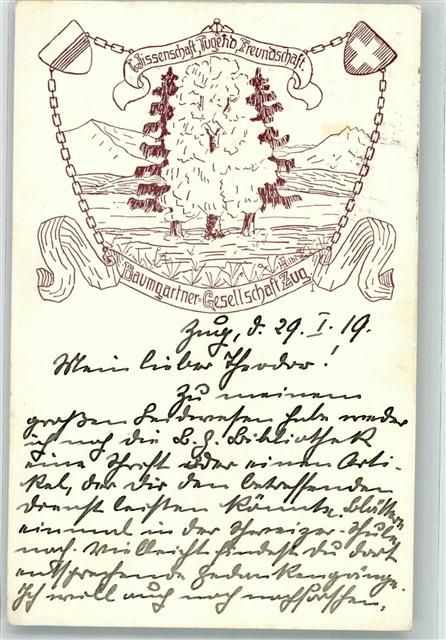 Wissenschaft, Tugend, Freundschaft.
Baumgartner-Gesellschaft Zug
Zug, d. 29. I. 19.
Mein lieber Theodor!
Zu meinem
großen Leidwesen habe weder
ich noch die B. G. Bibliothek
eine Schrift oder einen Arti-
kel, der dir den betreffenden
Dienst leisten könnte. Blättere
einmal in der Schweizer-Schule
nach. Vielleicht findest du dort
entsprechende Gedankengänge.
Ich will auch noch nachforschen,